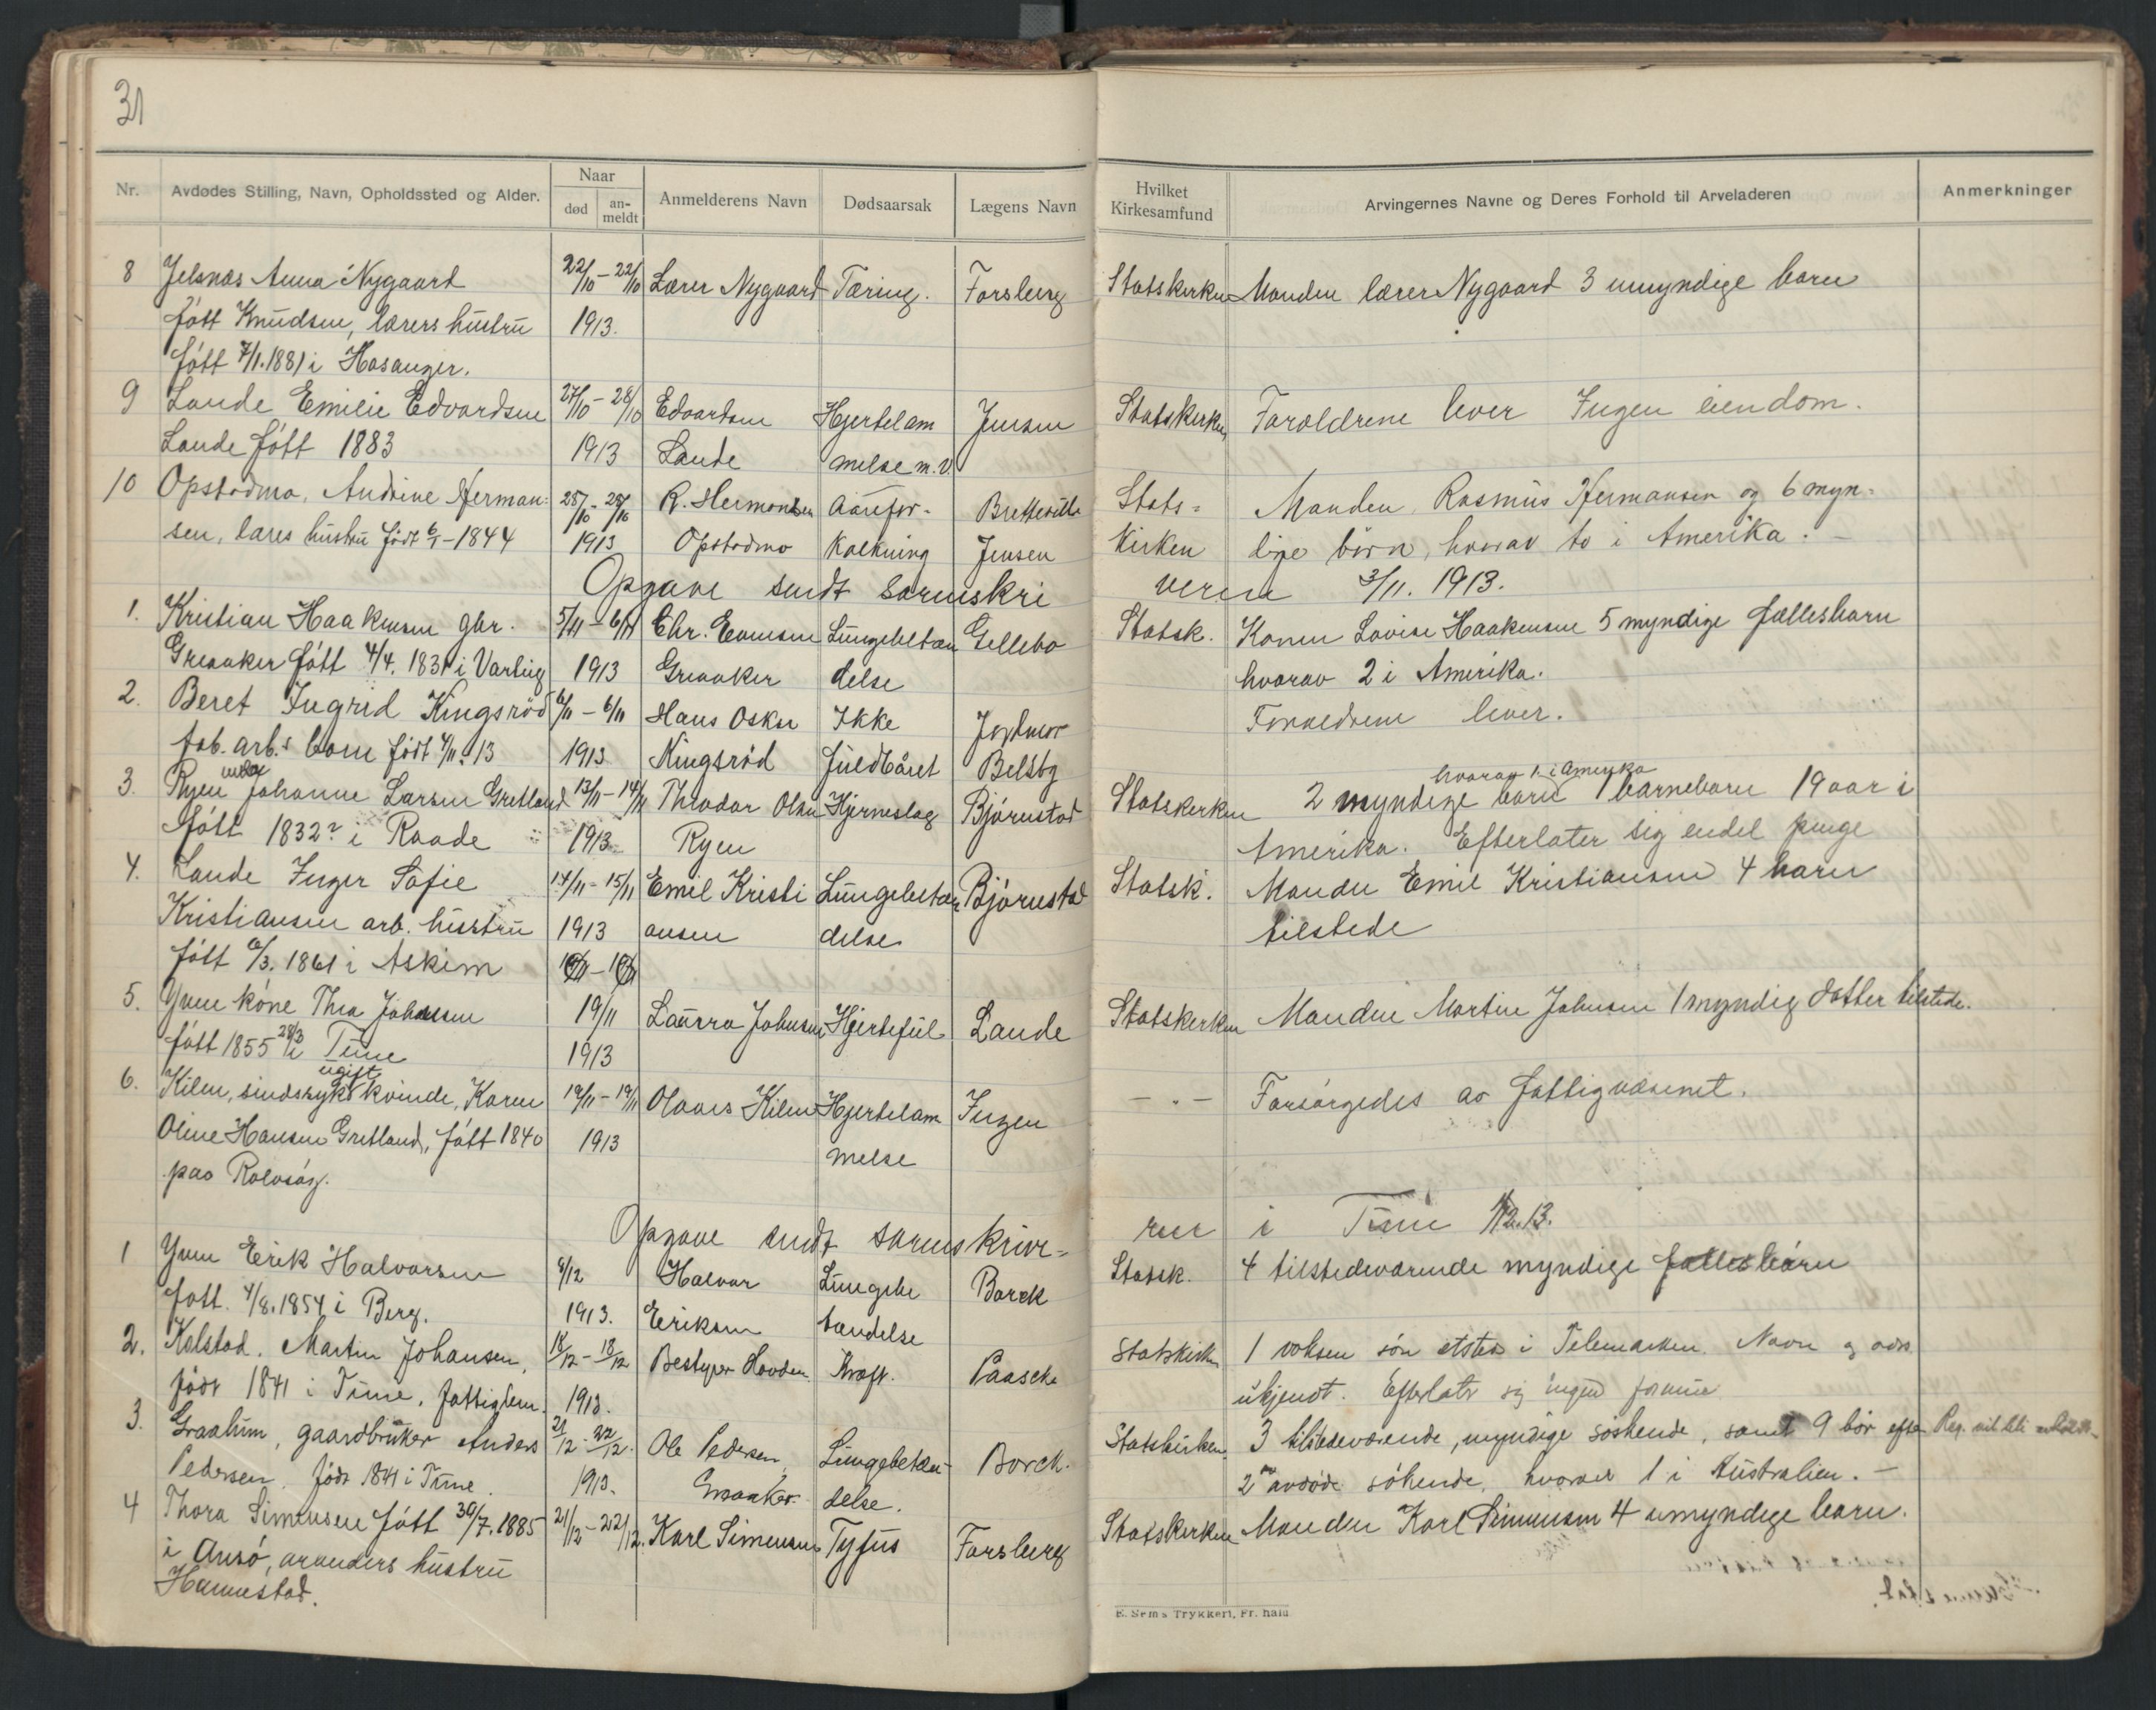 31
Nr. Avdødes Stilling, Navn, Opholdssted og Alder. Naar død an-meldt Anmelderens Navn Dødsaarsak Lægens Navn Hvilket Kirkesamfund Arvingernes Navne og Deres Forhold til Arveladeren Anmerkninger
8 Jelsnæs Anna Nygaard 22/10 – 22/10 Lærer Nygaard Tæring. Forsberg Statskirken Manden lærer Nygaard 3 umyndige barn
født Knudsen, lærers hustru 1913.
født 7/1.1881 i Hosanger.
9 Lande Emilie Edvardsen 27/10 – 28/10 Edvardsen Hjertelam Jensen Statskirken Foreldrene lever Ingen eiendom.
Lande født 1883 1913 Lande melse m.v.
10 Opstadmo, Andrine Herman= 28/10 – 28/10 R. Hermansen Aarefor- Bretteville Stats= Manden, Rasmus Hermansen og 6 myn=
sen, hustru født 6/1 – 1844 1913 Opstadmo kalkning Jensen Kirken dige børn, hvorav to i Amerika. –
Opgave sendt sorenskriveren 3/11. 1913.
1. Kristian Haakensen gbr. 5/11 – 6/11 Chr. Evensen Lungebetæn Gellebo Statsk. Konen Lovise Haakensen 5 myndige fællesbarn
Greaaker født 4/4. 1831 i Varteig 1913 Greaaker delse hvorav 2 i Amerika.
2. Beret Ingrid Kingsrød 6/11 – 6/11 Hans Oskar Ikke Jordmor Forældrene lever.
fab. arb.s barn født 4/11.13 1913 Kingsrød fuldbåret Belsby
3. Ryen Johanne Larsen Gretland 13/11 – 14/11 Theodor Olsen Hjerneslag Bjørnstad Statskirken 2 myndige barn hvorav 1 i Amerika 1 barnebarn 19 aar i
født 1832? i Raade 1913 Ryen Amerika. Efterlater sig endel penge
4. Lande Inger Sofie 14/11 – 15/11 Emil Kristi Lungebetæn Bjørnstad Statsk. Manden Emil Kristiansen 4 barn
Kristiansen arb. hustru 1913 ansen delse tilstede
født /3. 1861 i Askim
5. Yven kone Thea Johansen 19/11 Laurra Johnsen Hjertefeil Lande Statskirken Manden Martin Johnsen 1 myndig datter tilstede.
født 1855 28/3 i Tune 1913
6. Kilen, sindssyk ugift kvinde, Karen 19/11 – 19/11 Olaves Kilen Hjertelam Ingen – " – Forsørgedes av fattigvæsenet.
Oline Hansen Gretland, født 1840 1913 melse
paa Rolvsøy.
Opgave sendt sorenskriveren i Tune 1/12.13.
1 Yven Erik Halvorsen 8/12 Halvor Lungebe Borck Statsk. 4 tilstedeværende myndige fællesbørn
født. 4/8.1854 i Berg. 1913. Eriksen tændelse
2. Kalstad. Martin Johansen, 18/12 – 18/12 Bestyrer Hovden Kræft. Paasche Statskirken 1 voksen søn etsted i Telemarken. Navn og adrs
født 1841 i Tune, fattiglem. 1913. ukjendt. Efterlater sig ingen formue
3. Graalum, gaardbruker Anders 21/12 – 22/12. Ole Pedersen, Lungebetæn- Borck. Statskirken 3 tilstedeværende, myndige søskende, samt 9 bør efter Reg. vil bli
Pedersen, født 1841 i Tune. 1913. Greaaker. delse. 2 avdøde søskende, hvorav 1 i Australien. –
4 Thora Simensen født 30/7.1885 21/12 – 22/12. Karl Simensen Tyfus Forsberg Statskirken Manden Karl Simensen 4 umyndige barn.
i Aursø, hustru
Hannestad.
E. Sem's Trykkeri, Fr. hald